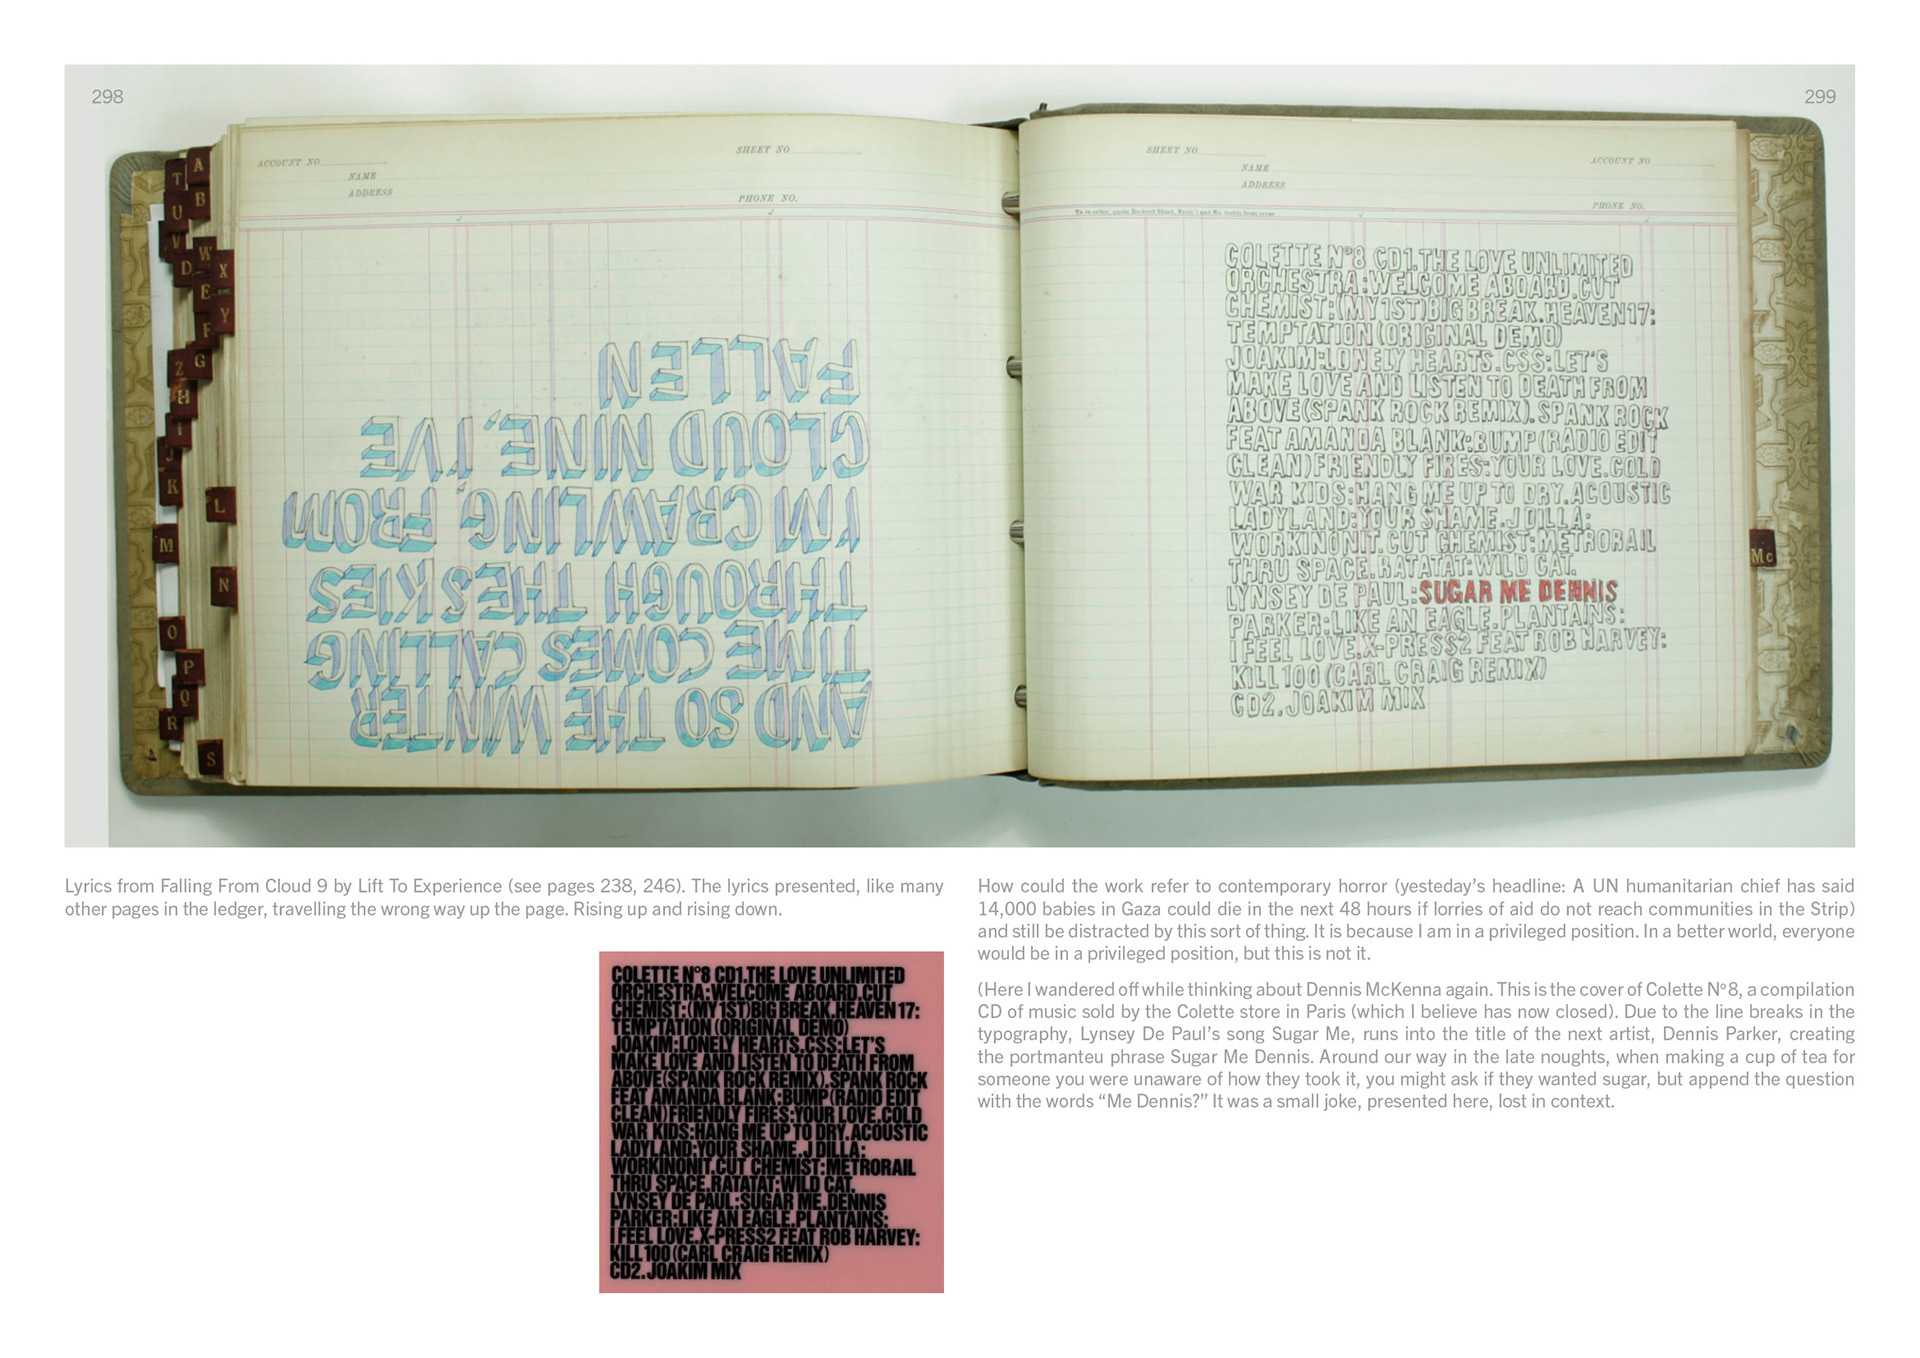 298
299
ACCOUNT NO
SHEET NO
NAME
ADDRESS
PHONE NO.
A
T
B
U
V
W
D
X
E
Y
F
G
Z
H
I
J
K
L
M
N
O
P
Q
R
S
AND SO THE WINTER
TIME COMES CALLING
THROUGH THE SKIES
I'M CRAWLING, FROM
CLOUD NINE, I'VE
FALLEN
SHEET NO
ACCOUNT NO
NAME
ADDRESS
PHONE NO.
COLETTE N°8 CD1.THE LOVE UNLIMITED
ORCHESTRA:WELCOME ABOARD.CUT
CHEMIST:(MY1ST)BIG BREAK.HEAVEN17:
TEMPTATION (ORIGINAL DEMO)
JOAKIM:LONELY HEARTS.CSS:LET'S
MAKE LOVE AND LISTEN TO DEATH FROM
ABOVE(SPANK ROCK REMIX).SPANK ROCK
FEAT AMANDA BLANK:BUMP(RADIO EDIT
CLEAN)FRIENDLY FIRES:YOUR LOVE.COLD
WAR KIDS:HANG ME UP TO DRY.ACOUSTIC
LADYLAND:YOUR SHAME.J DILLA:
WORKINONIT.CUT CHEMIST:METRORAIL
THRU SPACE.RATATAT:WILD CAT.
LYNSEY DE PAUL:SUGAR ME DENNIS
PARKER:LIKE AN EAGLE.PLANTAINS:
I FEEL LOVE.X-PRESS2 FEAT ROB HARVEY:
KILL 100 (CARL CRAIG REMIX)
CD2.JOAKIM MIX
Mc
Lyrics from Falling From Cloud 9 by Lift To Experience (see pages 238, 246). The lyrics presented, like many
other pages in the ledger, travelling the wrong way up the page. Rising up and rising down.
COLETTE N°8 CD1.THE LOVE UNLIMITED
ORCHESTRA:WELCOME ABOARD.CUT
CHEMIST:(MY1ST)BIG BREAK.HEAVEN 17:
TEMPTATION (ORIGINAL DEMO)
JOAKIM:LONELY HEARTS.CSS:LET'S
MAKE LOVE AND LISTEN TO DEATH FROM
ABOVE(SPANK ROCK REMIX).SPANK ROCK
FEAT AMANDA BLANK:BUMP(RADIO EDIT
CLEAN)FRIENDLY FIRES:YOUR LOVE.COLD
WAR KIDS:HANG ME UP TO DRY.ACOUSTIC
LADYLAND:YOUR SHAME.J DILLA:
WORKINONIT.CUT CHEMIST:METRORAIL
THRU SPACE.RATATAT:WILD CAT.
LYNSEY DE PAUL:SUGAR ME.DENNIS
PARKER:LIKE AN EAGLE.PLANTAINS:
I FEEL LOVE.X-PRESS2 FEAT ROB HARVEY:
KILL 100 (CARL CRAIG REMIX)
CD2.JOAKIM MIX
How could the work refer to contemporary horror (yesteday's headline: A UN humanitarian chief has said
14,000 babies in Gaza could die in the next 48 hours if lorries of aid do not reach communities in the Strip)
and still be distracted by this sort of thing. It is because I am in a privileged position. In a better world, everyone
would be in a privileged position, but this is not it.
(Here I wandered off while thinking about Dennis McKenna again. This is the cover of Colette N°8, a compilation
CD of music sold by the Colette store in Paris (which I believe has now closed). Due to the line breaks in the
typography, Lynsey De Paul's song Sugar Me, runs into the title of the next artist, Dennis Parker, creating
the portmanteu phrase Sugar Me Dennis. Around our way in the late noughts, when making a cup of tea for
someone you were unaware of how they took it, you might ask if they wanted sugar, but append the question
with the words “Me Dennis?” It was a small joke, presented here, lost in context.